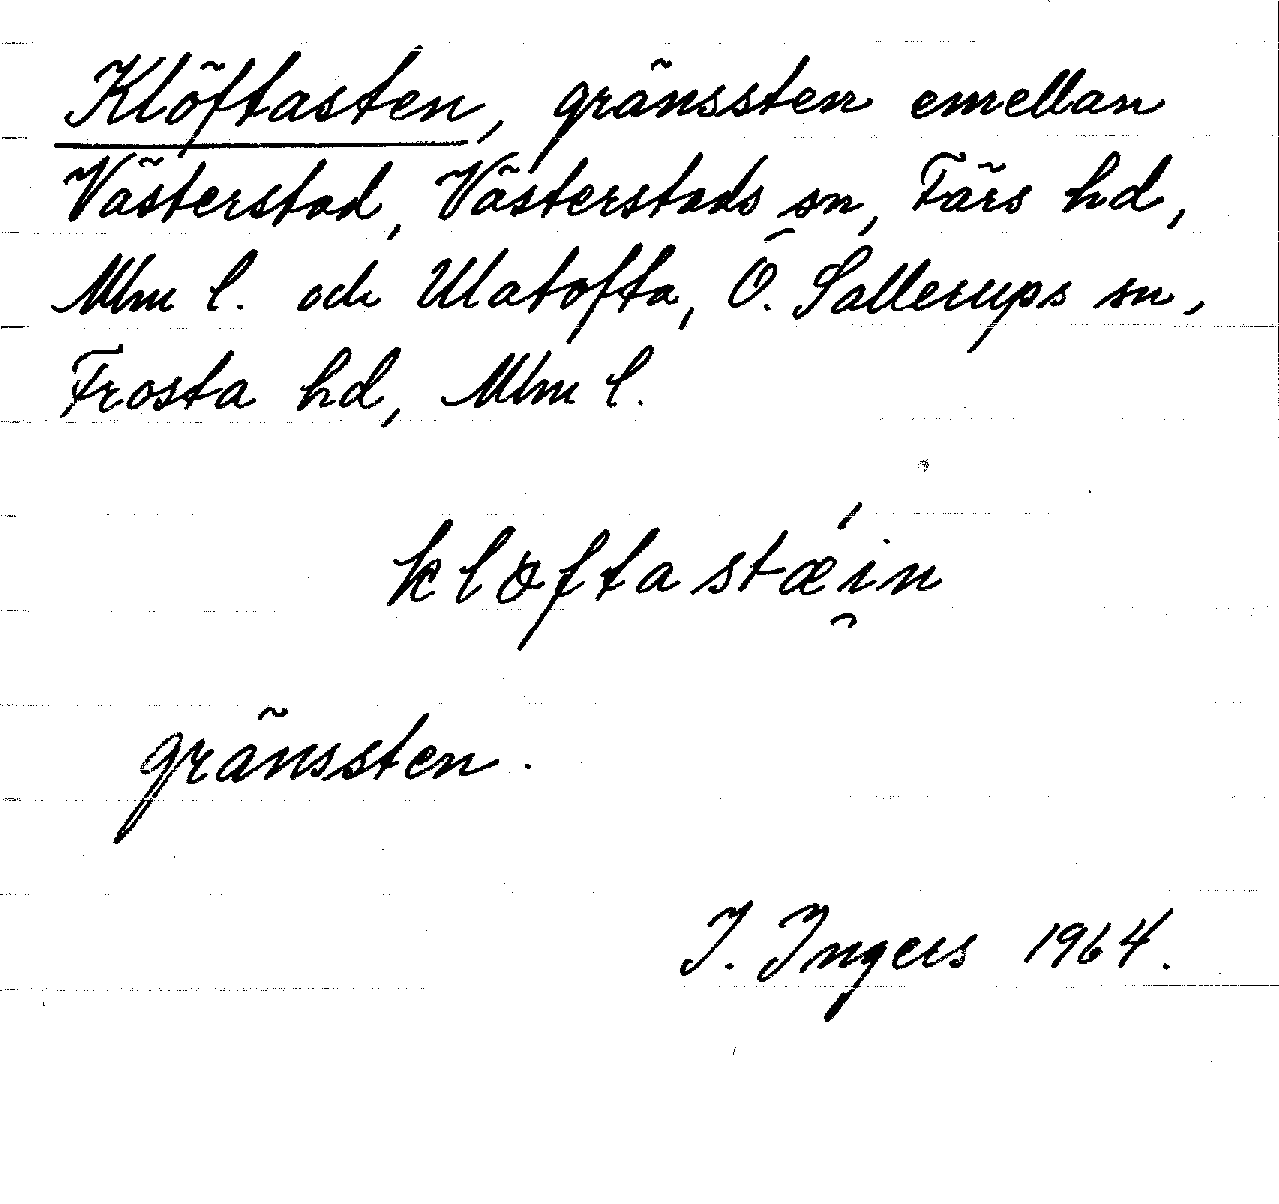 Klöftasten, gränssten emellan
Västerstad, Västerstads sn, Färs hd,
Mlm l. och Ulatofta, Ö. Sallerups sn,
Frosta hd, Mlm l.
kløftastǽi̯n
gränssten.
I. Ingers 1964.